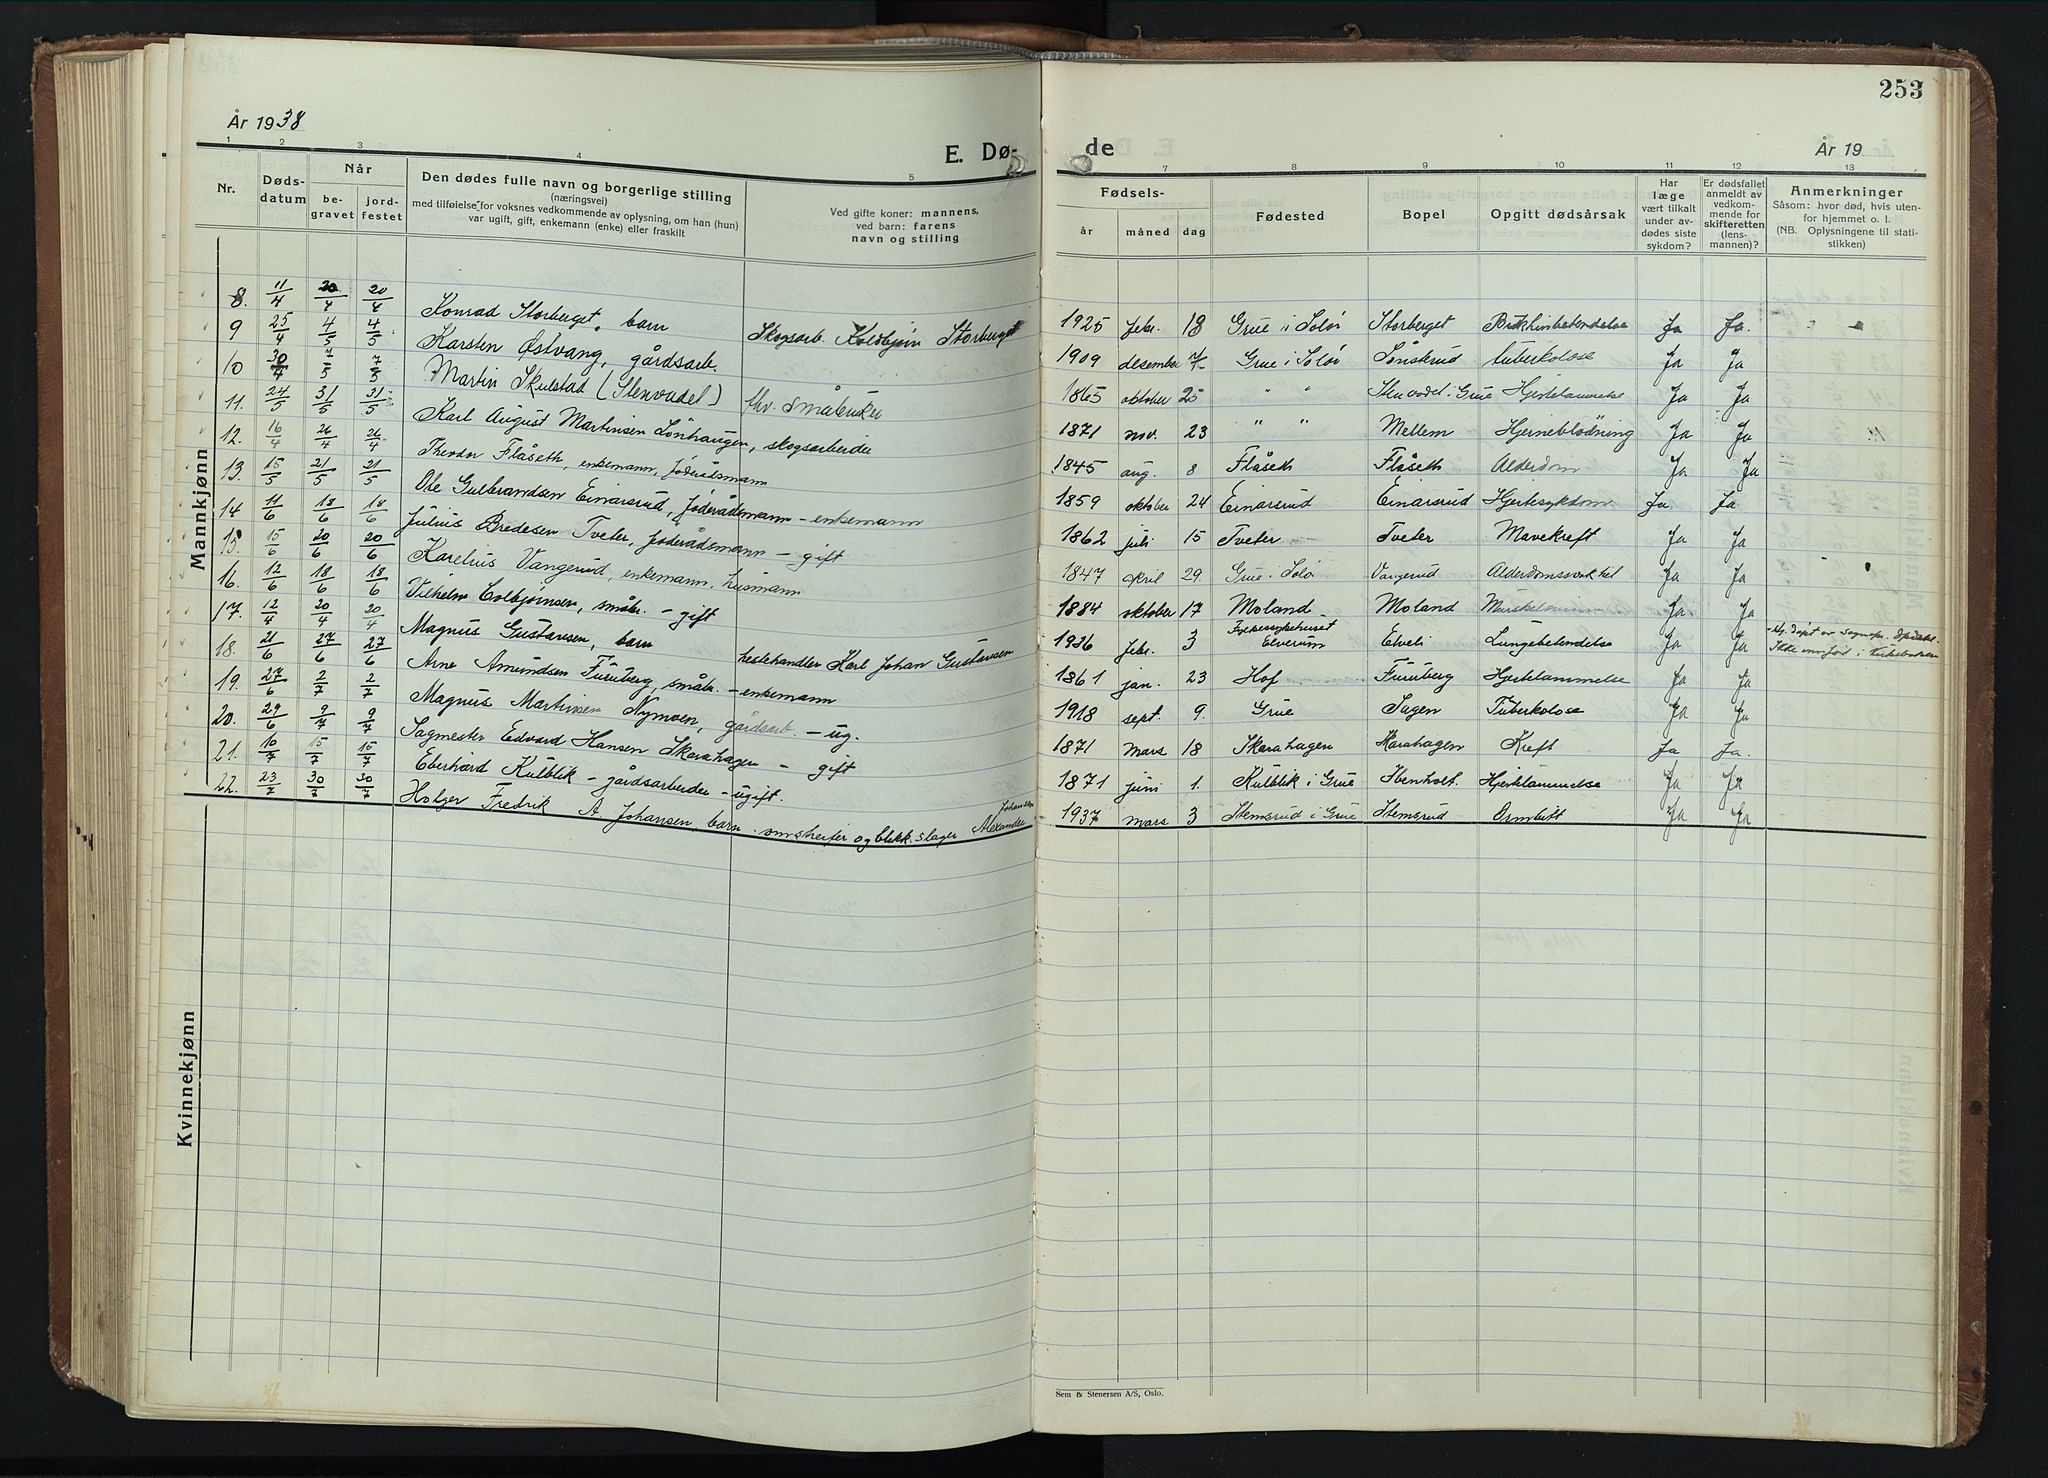 253
År 1938
E. Dø-
de
År 19
1 2 3 4 5 7 8 9 10 11 12 13
Nr.
Døds-
datum
Når
be-
gravet
jord-
festet
Den dødes fulle navn og borgerlige stilling
(næringsvei)
med tilføielse for voksnes vedkommende av oplysning, om han (hun)
var ugift, gift, enkemann (enke) eller fraskilt
Ved gifte koner: mannens,
ved barn: farens
navn og stilling
Fødsels-
år måned dag
Fødested
Bopel
Opgitt dødsårsak
Har
læge
vært tilkalt
under av-
dødes siste
sykdom?
Er dødsfallet
anmeldt av
vedkom-
mende for
skifteretten
(lens-
mannen)?
Anmerkninger
Såsom: hvor død, hvis uten-
for hjemmet o. l.
(NB. Oplysningene til stati-
stikken)
Mannkjønn
8. 11/4 20/4 20/4 Konrad Storberget, barn Skogsarb. Koldbjørn Storberget 1925 febr. 18 Grue i Solør Storberget Ja Ja.
9 25/4 4/5 4/5 Karsten Østvang, gårdsarb. 1909 desember Grue i Solør Sönsterud tuberkolose Ja Ja
10 30/4 7/5 7/5 Martin Skulstad (Stenvadet) fhv. småbruker 1865 oktober 25 " " Stenvadet i Grue Hjertelammelse Ja Ja
11. 24/5 31/5 31/5 Karl August Martinsen Lönhaugen, skogsarbeider 1871 nov. 23 " " Mellem Hjerneblödning Ja Ja
12. 16/4 26/4 26/4 Theodor Flåseth, enkemann, föderådsmann 1845 aug. 8 Flåseth Flåseth Alderdom Ja Ja
13. 15/5 21/5 21/5 Ole Gulbrandsen Einarsrud, föderådsmann - enkemann 1859 oktober 24 Einarsrud Einarsrud Hjertesykdom Ja Ja
14 11/6 18/6 18/6 Julius Bredesen Tveter, föderådsmann - gift 1862 juli 15 Tveter Tveter Mavekreft Ja Ja
15. 15/6 20/6 20/6 Karelius Vangerud, enkemann, husmann 1847 april 29. Grue i Solør Vangerud Alderdomssvakhet Ja Ja
16. 12/6 18/6 18/6 Vilhelm Colbjørnsen, småbr. - gift 1884 oktober 17 Moland Moland Ja Ja
17. 12/4 20/4 20/4 Magnus Gustavsen, barn hestehandler Karl Johan Gustavsen 1936 febr. 3 Folkesykehuset Elverum Elveli Lungebetendelse Ja Ja Ikke innförd i Kirkeboken
18. 21/6 27/6 27/6 Arne Amundsen Furuberg, småbr. - enkemann 1861 jan. 23 Hof Furuberg Hjertelammelse Ja Ja
19. 27/6 2/7 2/7 Magnus Martinsen Nymoen, gårdsarb. - ug. 1918 sept. 9. Grue Sagen Tuberkolose Ja Ja
20. 29/6 9/7 9/7 Sagmester Edvard Hansen Skarahagen - gift 1871 mars 18 Skarahagen Skarahagen Kreft Ja Ja.
21. 10/7 15/7 15/7 Eberhard Kulblik - gårdsarbeider - ugift. 1871 juni 1. Kulblik i Grue Ibenholt. Hjertelammelse Ja Ja
22. 23/7 30/7 30/7 Holger Fredrik A Johansen, barn - omstreifer og blikk.slager Alexander Johansen 1937 mars 3 Stemsrud i Grue Stemsrud Ja Ja
Kvinnekjønn
Sem & Stenersen A/S, Oslo.